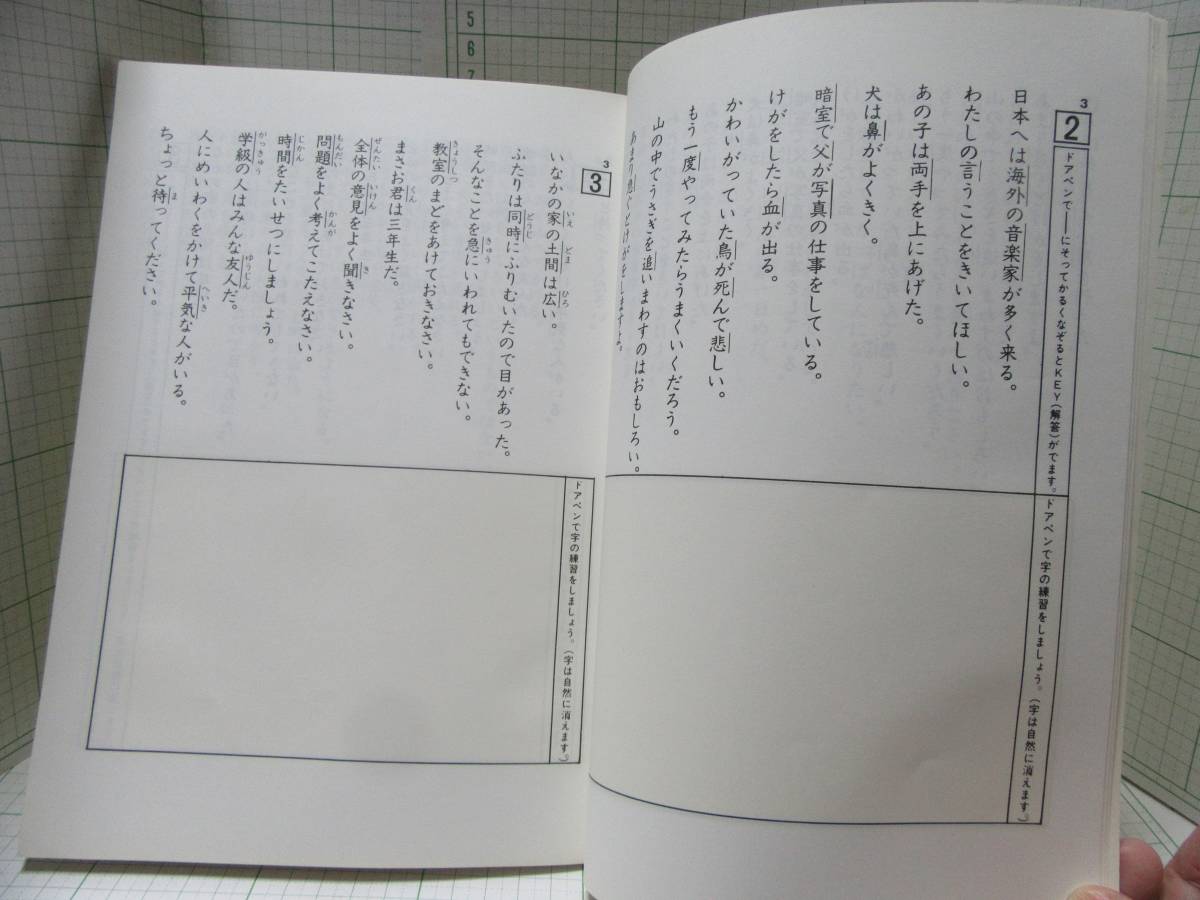 5
6
7
3
2
ドアペンで――にそってかるくなぞるとKEY(解答)がでます。
ドアペンで字の練習をしましょう。(字は自然に消えます。)
日本へは海外の音楽家が多く来る。
わたしの言うことをきいてほしい。
あの子は両手を上にあげた。
犬は鼻がよくきく。
暗室で父が写真の仕事をしている。
けがをしたら血が出る。
かわいがっていた鳥が死んで悲しい。
もう一度やってみたらうまくいくだろう。
山の中でうさぎを追いまわすのはおもしろい。
あまり急ぐとけがをしますよ。
3
3
いなかの家の土間は広い。
いえ どま ひろ
ふたりは同時にふりむいたので目があった。
どうじ
そんなことを急にいわれてもできない。
きゅう
教室のまどをあけておきなさい。
きょうしつ
まさお君は三年生だ。
くん
全体の意見をよく聞きなさい。
ぜんたい いけん き
問題をよく考えてこたえなさい。
もんだい かんが
時間をたいせつにしましょう。
じかん
学級の人はみんな友人だ。
がっきゅう ゆうじん
人にめいわくをかけて平気な人がいる。
へいき
ちょっと待ってください。
ま
ドアペンで字の練習をしましょう。(字は自然に消えます。)